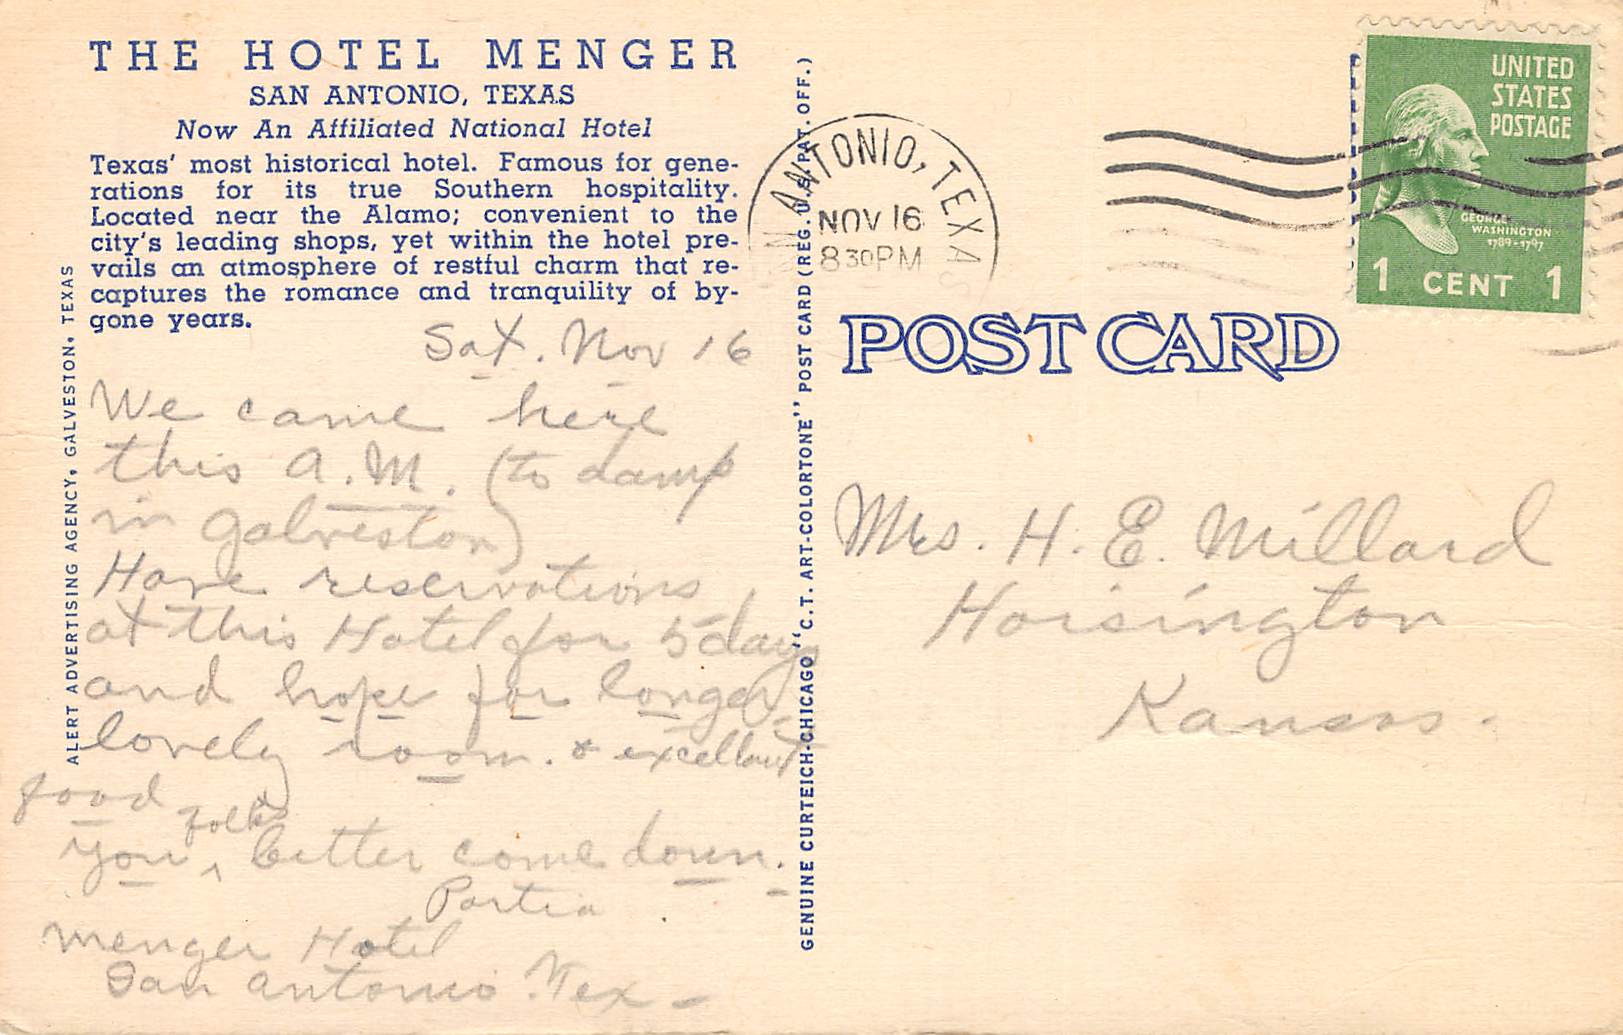 THE HOTEL MENGER
SAN ANTONIO, TEXAS
Now An Affiliated National Hotel
Texas' most historical hotel. Famous for gene-
rations for its true Southern hospitality.
Located near the Alamo; convenient to the
city's leading shops, yet within the hotel pre-
vails an atmosphere of restful charm that re-
captures the romance and tranquility of by-
gone years.
Sat. Nov 16
We came here
this A.M. (to damp
in Galveston)
Have reservations
at this Hotel for 5 days
and hope for longer
lovely room. & excellent
food
folks
you ^ better come down.
Portia
Menger Hotel
San Antonio Tex -
ALERT ADVERTISING AGENCY, GALVESTON, TEXAS
GENUINE CURTEICH-CHICAGO "C.T. ART-COLORTONE" POST CARD (REG. U.S. PAT. OFF.)
SAN ANTONIO, TEXAS
NOV 16
8 30 PM
UNITED
STATES
POSTAGE
GEORGE
WASHINGTON
1789-1797
1 CENT 1
POST CARD
Mrs. H. E. Millard
Hoisington
Kansas.